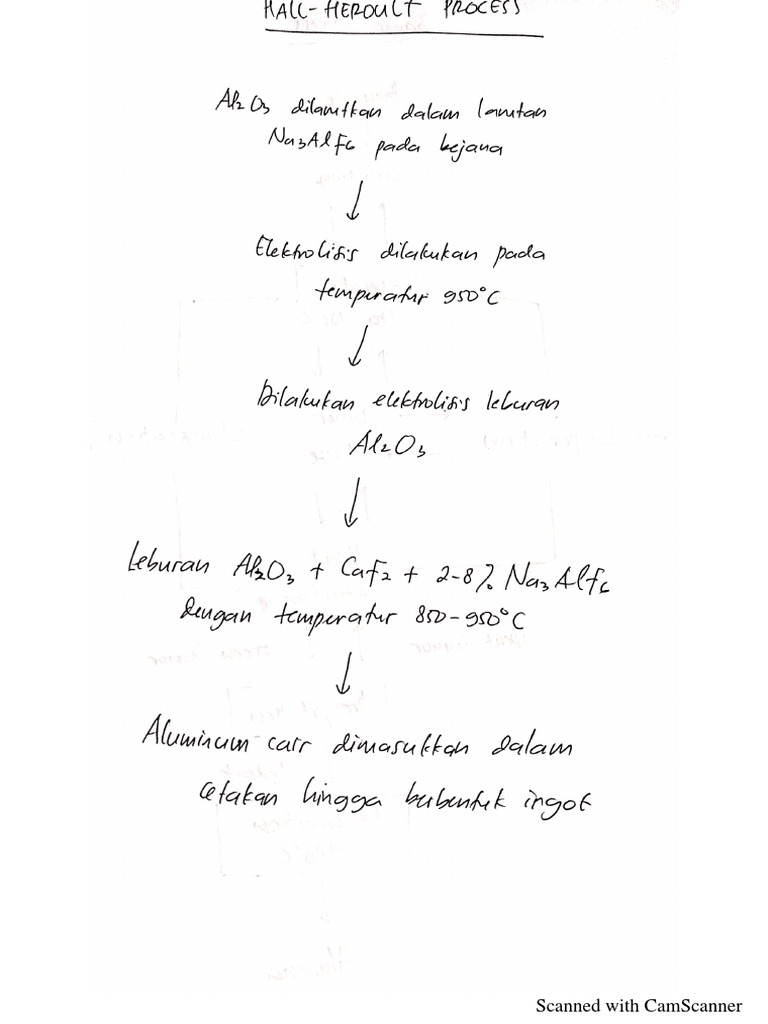 HALL-HEROULT PROCESS
Al2O3 dilarutkan dalam larutan
Na3AlF6 pada bejana
↓
Elektrolisis dilakukan pada
temperatur 950°C
↓
Dilakukan elektrolisis leburan
Al2O3
↓
Leburan Al2O3 + CaF2 + 2-8% Na3AlF6
dengan temperatur 850-950°C
↓
Aluminum cair dimasukkan dalam
cetakan hingga berbentuk ingot
Scanned with CamScanner